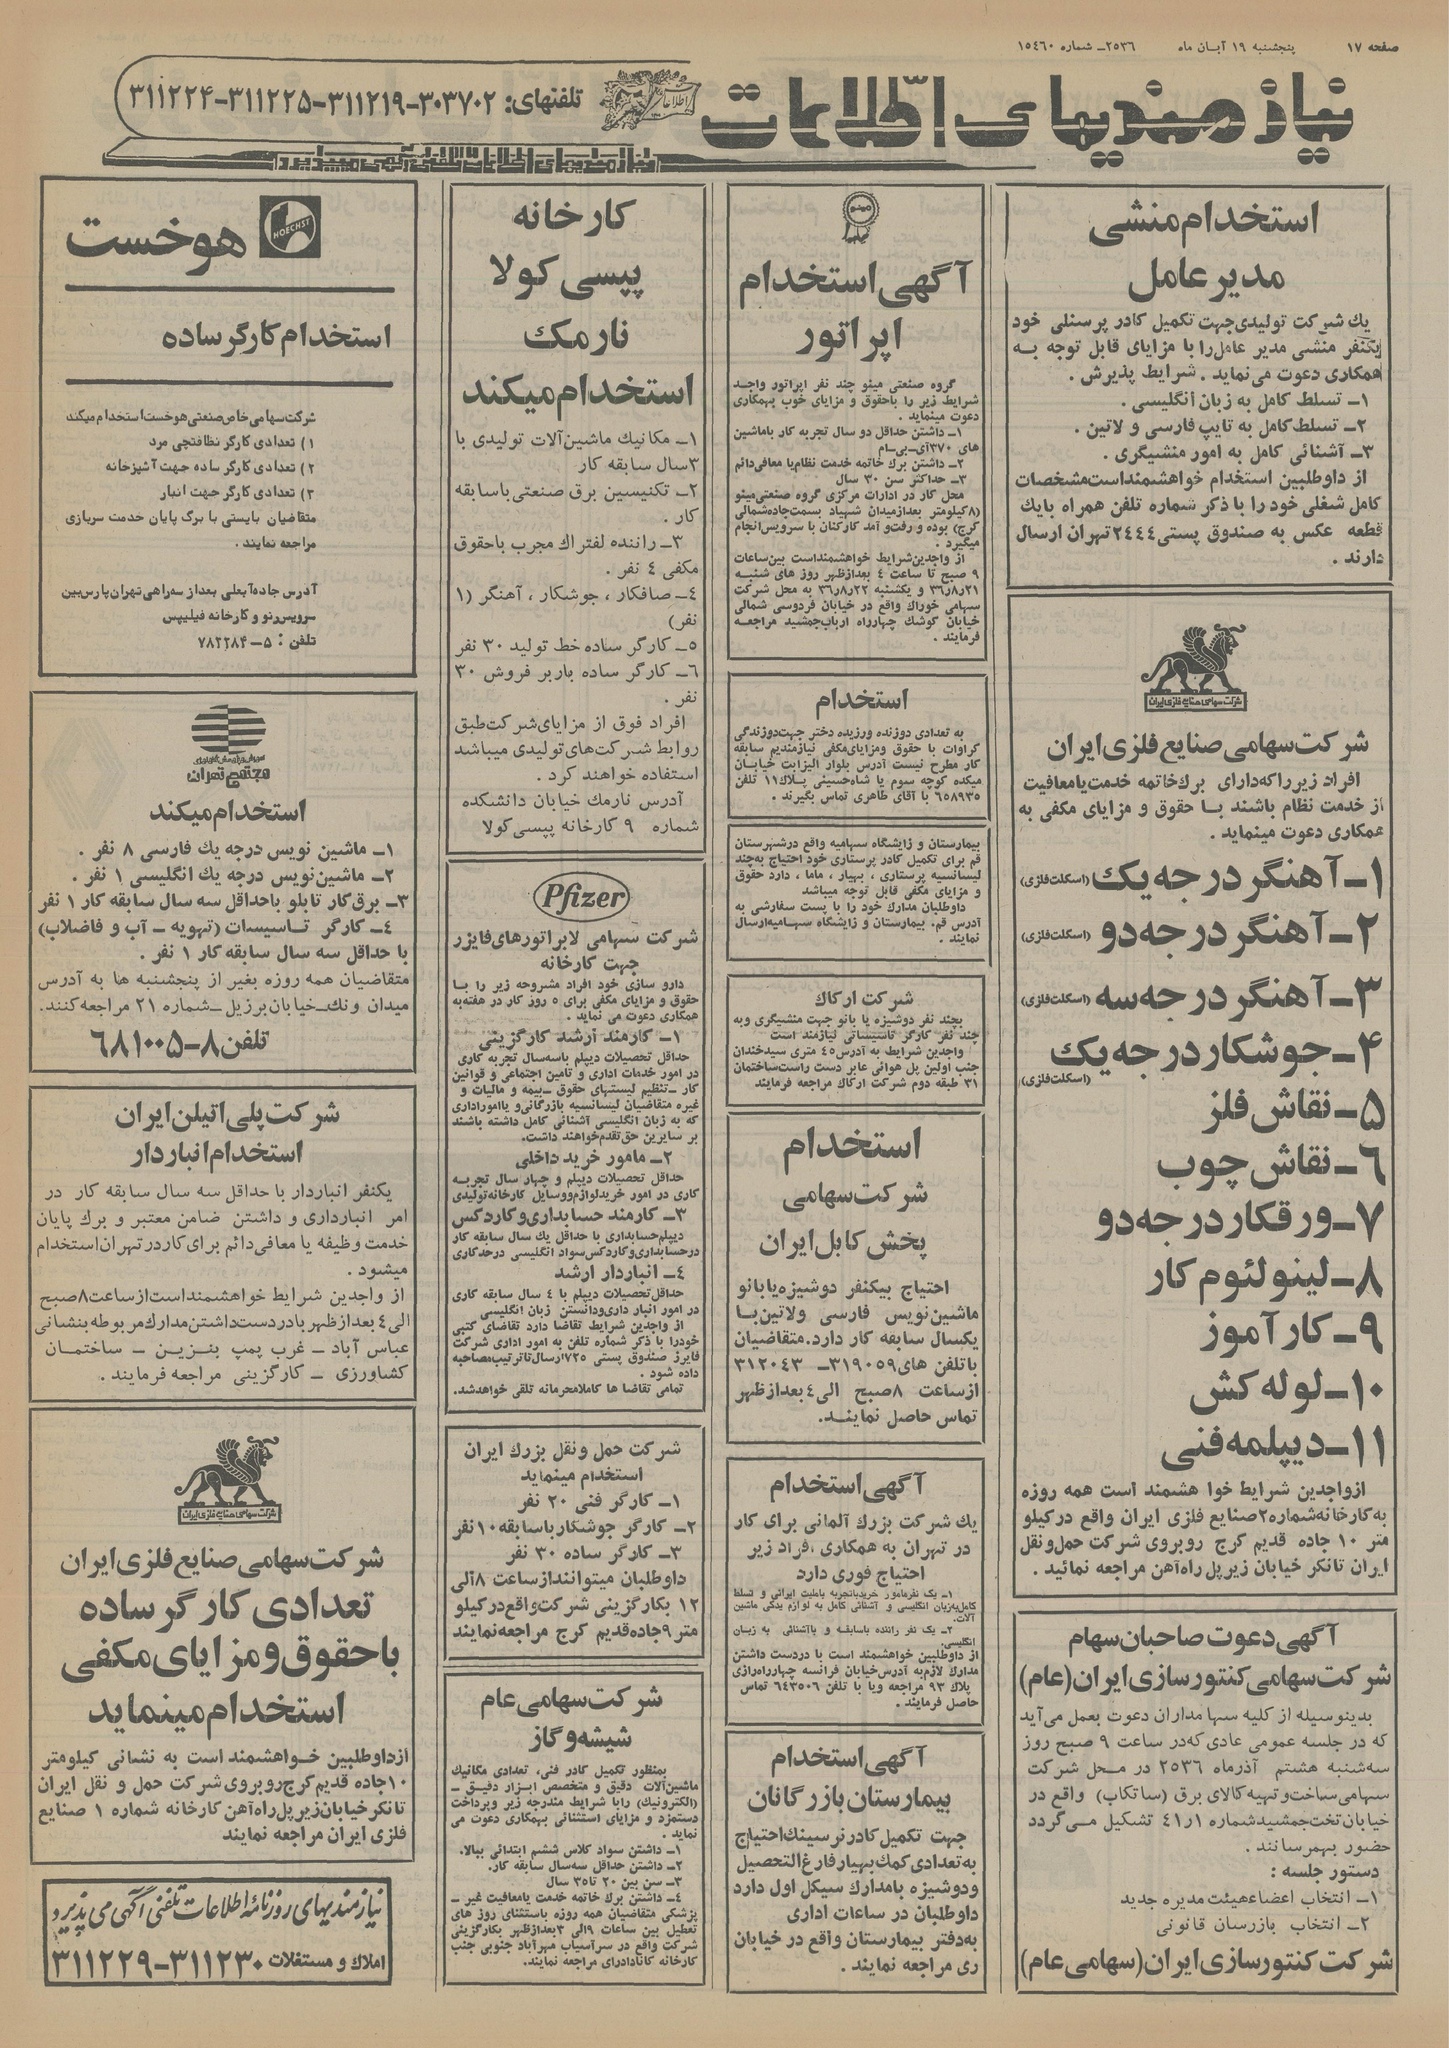 صفحه ۱۷
پنجشنبه ۱۹ آبان ماه ۲۵۳۶ـ شماره ۱۵٤۶۰
نیازمندیهای اطلاعات
تلفنهای: ۳۰۳۷۰۲-۳۱۱۲۱۹-۳۱۱۲۲۵-۳۱۱۲۲۴
نیازمندیهای اطلاعات تلفنی آگهی میپذیرد
استخدام منشی
مدیر عامل
یك شرکت تولیدی جهت تکمیل کادر پرسنلی خود
یکنفر منشی مدیر عامل را با مزایای قابل توجه به
همکاری دعوت می‌نماید . شرایط پذیرش .
۱ـ تسلط کامل به زبان انگلیسی .
۲ـ تسلط کامل به تایپ فارسی و لاتین .
۳ـ آشنائی کامل به امور منشیگری .
از داوطلبین استخدام خواهشمند است مشخصات
کامل شغلی خود را با ذکر شماره تلفن همراه بایك
قطعه عکس به صندوق پستی ۲٤٤٤ تهران ارسال
دارند .
شرکت سهامی صنایع فلزی ایران
شرکت سهامی صنایع فلزی ایران
افراد زیر را که دارای برك خاتمه خدمت یا معافیت
از خدمت نظام باشند بـا حقوق و مزایای مکفی به
همکاری دعوت مینماید .
۱ـ آهنگر درجه یک (اسکلت فلزی)
۲ـ آهنگر درجه دو (اسکلت فلزی)
۳ـ آهنگر درجه سه (اسکلت فلزی)
۴ـ جوشکار درجه یک
(اسکلت فلزی)
۵ـ نقاش فلز
۶ـ نقاش چوب
۷ـ ورقکار درجه دو
۸ـ لینولئوم کار
۹ـ کارآموز
۱۰ـ لوله کش
۱۱ـ دیپلمه فنی
از واجدین شرایط خواهشمند است همه روزه
به کارخانه شماره ۲ صنایع فلزی ایران واقع در کیلو
متر ۱۰ جاده قدیم کرج روبروی شرکت حمل و نقل
ایران تانکر خیابان زیر پل راه‌آهن مراجعه نمائید .
آگهی دعوت صاحبان سهام
شرکت سهامی کنتورسازی ایران (عام)
بدینوسیله از کلیه سهامداران دعوت بعمل می‌آید
که در جلسه عمومی عادی که در ساعت ۹ صبح روز
سه‌شنبه هشتم آذرماه ۲۵۳۶ در محل شرکت
سهامی ساخت و تهیه کالای برق (ساتکاب) واقع در
خیابان تخت جمشید شماره ۴۱٫۱ تشکیل مـی گردد
حضور بهمرسانند .
دستور جلسه :
۱ـ انتخاب اعضاء هیئت مدیره جدید
۲ـ انتخاب بازرسان قانونی
شرکت کنتورسازی ایران (سهامی عام)
مینو
آگهی استخدام
اپراتور
گروه صنعتی مینو چند نفر اپراتور واجد
شرایط زیر را باحقوق و مزایای خوب بهمکاری
دعوت مینماید .
۱ـ داشتن حداقل دو سال تجربه کار باماشین
های ۳۷۰آی-بی-ام
۲ـ داشتن برك خاتمه خدمت نظام یا معافی دائم
۳ـ حداکثر سن ۳۰ سال
محل کار در ادارات مرکزی گروه صنعتی مینو
(۸ کیلومتر بعداز میدان شهیاد بسمت جاده شمالی
کرج) بوده و رفت و آمد کارکنان با سرویس انجام
میگیرد .
از واجدین شرایط خواهشمند است بین ساعات
۹ صبح تا ساعت ٤ بعدازظهر روز های شنبه
۳۶٫۸٫۲۱ و یکشنبه ۳۶٫۸٫۲۲ به محل شرکت
سهامی خوراك واقع در خیابان فردوسی شمالی
خیابان کوشك چهارراه ارباب جمشید مراجعـه
فرمایند .
استخدام
به تعدادی دوزنده ورزیده دختر جهت دوزندگی
کراوات با حقوق ومزایای مکفی نیازمندیم سابقه
کار مطرح نیست آدرس بلوار الیزابت خیابان
میکده کوچه سوم یا شاه حسینی پلاك ۱۱ تلفن
۶۵۸۹۳۵ با آقای طاهری تماس بگیرند .
بیمارستان و زایشگاه سهامیه واقع درشهرستان
قم برای تکمیل کادر پرستاری خود احتیاج به چند
لیسانسیه پرستاری ، بهیار ، ماما ، دارد حقوق
و مزایای مکفی قابل توجه میباشد
داوطلبان مدارك خود را با پست سفارشی به
آدرس قم. بیمارستان و زایشگاه سهـامیه ارسال
نمایند .
شرکت ارکاك
بچند نفر دوشیزه یا بانو جهت منشیگری وبه
چند نفر کارگر تاسیساتی نیازمند است
واجدین شرایط به آدرس ٤۵ متری سیدخندان
جنب اولین پل هوائی عابر دست راست ساختمان
۳۱ طبقه دوم شرکت ارکاك مراجعه فرمایند
استخدام
شرکت سهامی
پخش کابل ایران
احتیاج بیکنفر دوشیزه یا بانو
ماشین نویس فارسی ولاتین بـا
یکسال سابقه کار دارد. متقاضیان
با تلفن های ۳۱۹۰۵۹ـ ۳۱۲۰۴۳
از ساعت ۸ صبح الی ٤ بعدازظهر
تماس حاصل نماینـد.
آگهی استخدام
یك شرکت بزرك آلمانی برای کار
در تهران به همکاری افراد زیر
احتیاج فوری دارد
۱ـ یک نفر مامور خرید باتجربه باملیت ایرانی و تسلط
کامل بزبان انگلیسی و آشنائی کامل به لوازم یدکی ماشین
آلات.
۲ـ یک نفر راننده باسابقه و باآشنائی به زبان
انگلیسی.
از داوطلبین خواهشمند است با دردست داشتن
مدارك لازم به آدرس خیابان فرانسه چهارراه رازی
پلاك ۹۳ مراجعه ویا با تلفن ۶۴۳۵۰۶ تماس
حاصل فرمایند .
آگهی استخدام
بیمارستان بازرگانان
جهت تکمیل کادر نرسینك احتیاج
به تعدادی کمك بهیار فارغ التحصیل
و دوشیزه با مدارك سیکل اول دارد
داوطلبان در ساعات اداری
به دفتر بیمارستان واقع در خیابان
ری مراجعه نمایند .
کارخانه
پپسی کولا
نارمک
استخدام میکند
۱ـ مکانیك ماشین آلات تولیدی با
۳ سال سابقه کار
۲ـ تکنیسین برق صنعتی باسابقه
کار .
۳ـ راننده لفتراك مجرب باحقوق
مکفی ٤ نفر .
٤ـ صافکار ، جوشکار ، آهنگر (۱
نفر)
۵ـ کارگر ساده خط تولید ۳۰ نفر
۶ـ کارگر ساده باربر فروش ۳۰
نفر .
افراد فوق از مزایای شرکت طبق
روابط شرکت های تولیدی میباشد
استفاده خواهند کرد .
آدرس نارمك خیابان دانشکده
شماره ۹ کارخانه پپسی کولا
Pfizer
شرکت سهامی لابراتورهای فایزر
جهت کارخانه
دارو سازی خود افراد مشروحه زیر را بـا
حقوق و مزایای مکفی برای ۵ روز کار در هفته به
همکاری دعوت می نماید .
۱ـ کارمند ارشد کارگزینی
حداقل تحصیلات دیپلم باسه سال تجربه کاری
در امور خدمات اداری و تامین اجتماعی و قوانین
کار ـ تنظیم لیستهای حقوق ـ بیمه و مالیات و
غیره متقاضیان لیسانسیه بازرگانی و یا امور اداری
که به زبان انگلیسی آشنائی کامل داشته باشند
بر سایرین حق تقدم خواهند داشت.
۲ـ مامور خرید داخلی
حداقل تحصیلات دیپلم و چهار سال تجربه
کاری در امور خرید لوازم و وسایل کارخانه تولیدی
۳ـ کارمند حسابداری و کاردکس
دیپلم حسابداری با حداقل یك سال سابقه کار
در حسابداری و کاردکس سواد انگلیسی در حد کاری
٤ـ انباردار ارشد
حداقل تحصیلات دیپلم با ٤ سال سابقه کاری
در امور انبار داری و دانستن زبان انگلیسی
از واجدین شرایط تقاضا دارد تقاضای کتبی
خود را با ذکر شماره تلفن به امور اداری شرکت
فایزر صندوق پستی ۱۷۲۵ ارسال تا ترتیب مصاحبه
داده شود .
تمامی تقاضا ها کاملا محرمانه تلقی خواهد شد.
شرکت حمل و نقل بزرك ایران
استخدام مینماید
۱ـ کارگر فنی ۲۰ نفر
۲ـ کارگر جوشکار باسابقه ۱۰ نفر
۳ـ کارگر ساده ۳۰ نفر
داوطلبان میتوانند از ساعت ۸ الی
۱۲ بکارگزینی شرکت واقع در کیلو
متر ۹ جاده قدیم کرج مراجعه نمایند
شرکت سهامی عام
شیشه و گاز
بمنظور تکمیل کادر فنی، تعدادی مکانیک
ماشین آلات دقیق و متخصص ابزار دقیق ـ
(الکترونیك) را با شرایط مندرجه زیر و پرداخت
دستمزد و مزایای استثنائی بهمکاری دعوت می
نماید .
۱ـ داشتن سواد کلاس ششم ابتدائی ببالا.
۲ـ داشتن حداقل سه سال سابقه کار.
۳ـ سن بین ۲۰ تا ۳۵ سال
٤ـ داشتن برك خاتمه خدمت یا معافیت غیر ـ
پزشکی متقاضیان همه روزه باستثنای روز های
تعطیل بین ساعات ۹ الی ۳ بعدازظهر بکارگزینی
شرکت واقع در سرآسیاب مهرآباد جنوبی جنب
کارخانه کانادادرای مراجعه نمایند.
HOECHST
هوخست
استخدام کارگر ساده
شرکت سهامی خاص صنعتی هوخست استخدام میکند
۱) تعدادی کارگر نظافتچی مرد
۲) تعدادی کارگر ساده جهت آشپزخانه
۳) تعدادی کارگر جهت انبار
متقاضیان بایستی با برگ پایان خدمت سربازی
مراجعه نمایند .
آدرس جاده آبعلی بعد از سه راهی تهران پارس بین
سرویس رنو و کارخانه فیلیپس
تلفن : ۵ـ ۷۸۲۲۸۴
مجتمع تهران
استخدام میکند
۱ـ ماشین نویس درجه یك فارسی ۸ نفر .
۲ـ ماشین نویس درجه یك انگلیسی ۱ نفر .
۳ـ برق کار تابلو با حداقل سه سال سابقه کار ۱ نفر
٤ـ کارگر تـاسیسات (تهویه ـ آب و فاضلاب)
با حداقل سه سال سابقه کار ۱ نفر .
متقاضیان همه روزه بغیر از پنجشنبه ها به آدرس
میدان ونك ـ خیابان برزیل ـ شماره ۲۱ مراجعه کنند.
تلفن ۸ـ۶۸۱۰۰۵
شرکت پلی اتیلن ایران
استخدام انباردار
یکنفر انباردار با حداقل سه سال سابقه کار در
امر انبارداری و داشتن ضامن معتبر و برك پایان
خدمت وظیفه یا معافی دائم برای کار در تهران استخدام
میشود .
از واجدین شرایط خواهشمند است از ساعت ۸ صبح
الی ٤ بعدازظهر با دردست داشتن مدارك مربوطه بنشانی
عباس آباد ـ غرب پمپ بنزین ـ ساختمان
کشاورزی ـ کارگزینی مراجعه فرمایند .
شرکت سهامی صنایع فلزی ایران
شرکت سهامی صنایع فلزی ایران
تعدادی کارگر ساده
با حقوق و مزایای مکفی
استخدام مینماید
از داوطلبین خواهشمند است به نشانی کیلومتر
۱۰ جاده قدیم کرج روبروی شرکت حمل و نقل ایران
تانکر خیابان زیر پل راه آهن کارخانه شماره ۱ صنایع
فلزی ایران مراجعه نمایند
نیازمندیهای روزنامه اطلاعات تلفنی آگهی می پذیرد
املاك و مستغلات ۳۱۱۲۳۰-۳۱۱۲۲۹